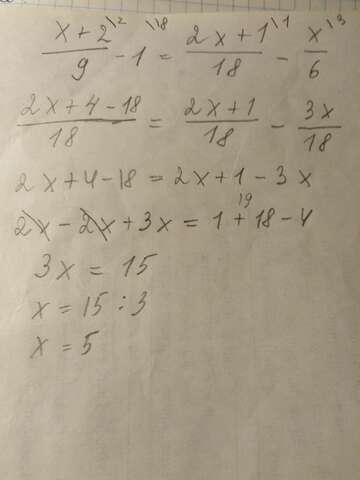 (x+2)/9 \2 - 1 \18 = (2x+1)/18 \1 - x/6 \3
(2x+4-18)/18 = (2x+1)/18 - 3x/18
2x+4-18 = 2x+1-3x
2x-2x+3x = 1+18-4 19
3x = 15
x = 15 : 3
x = 5